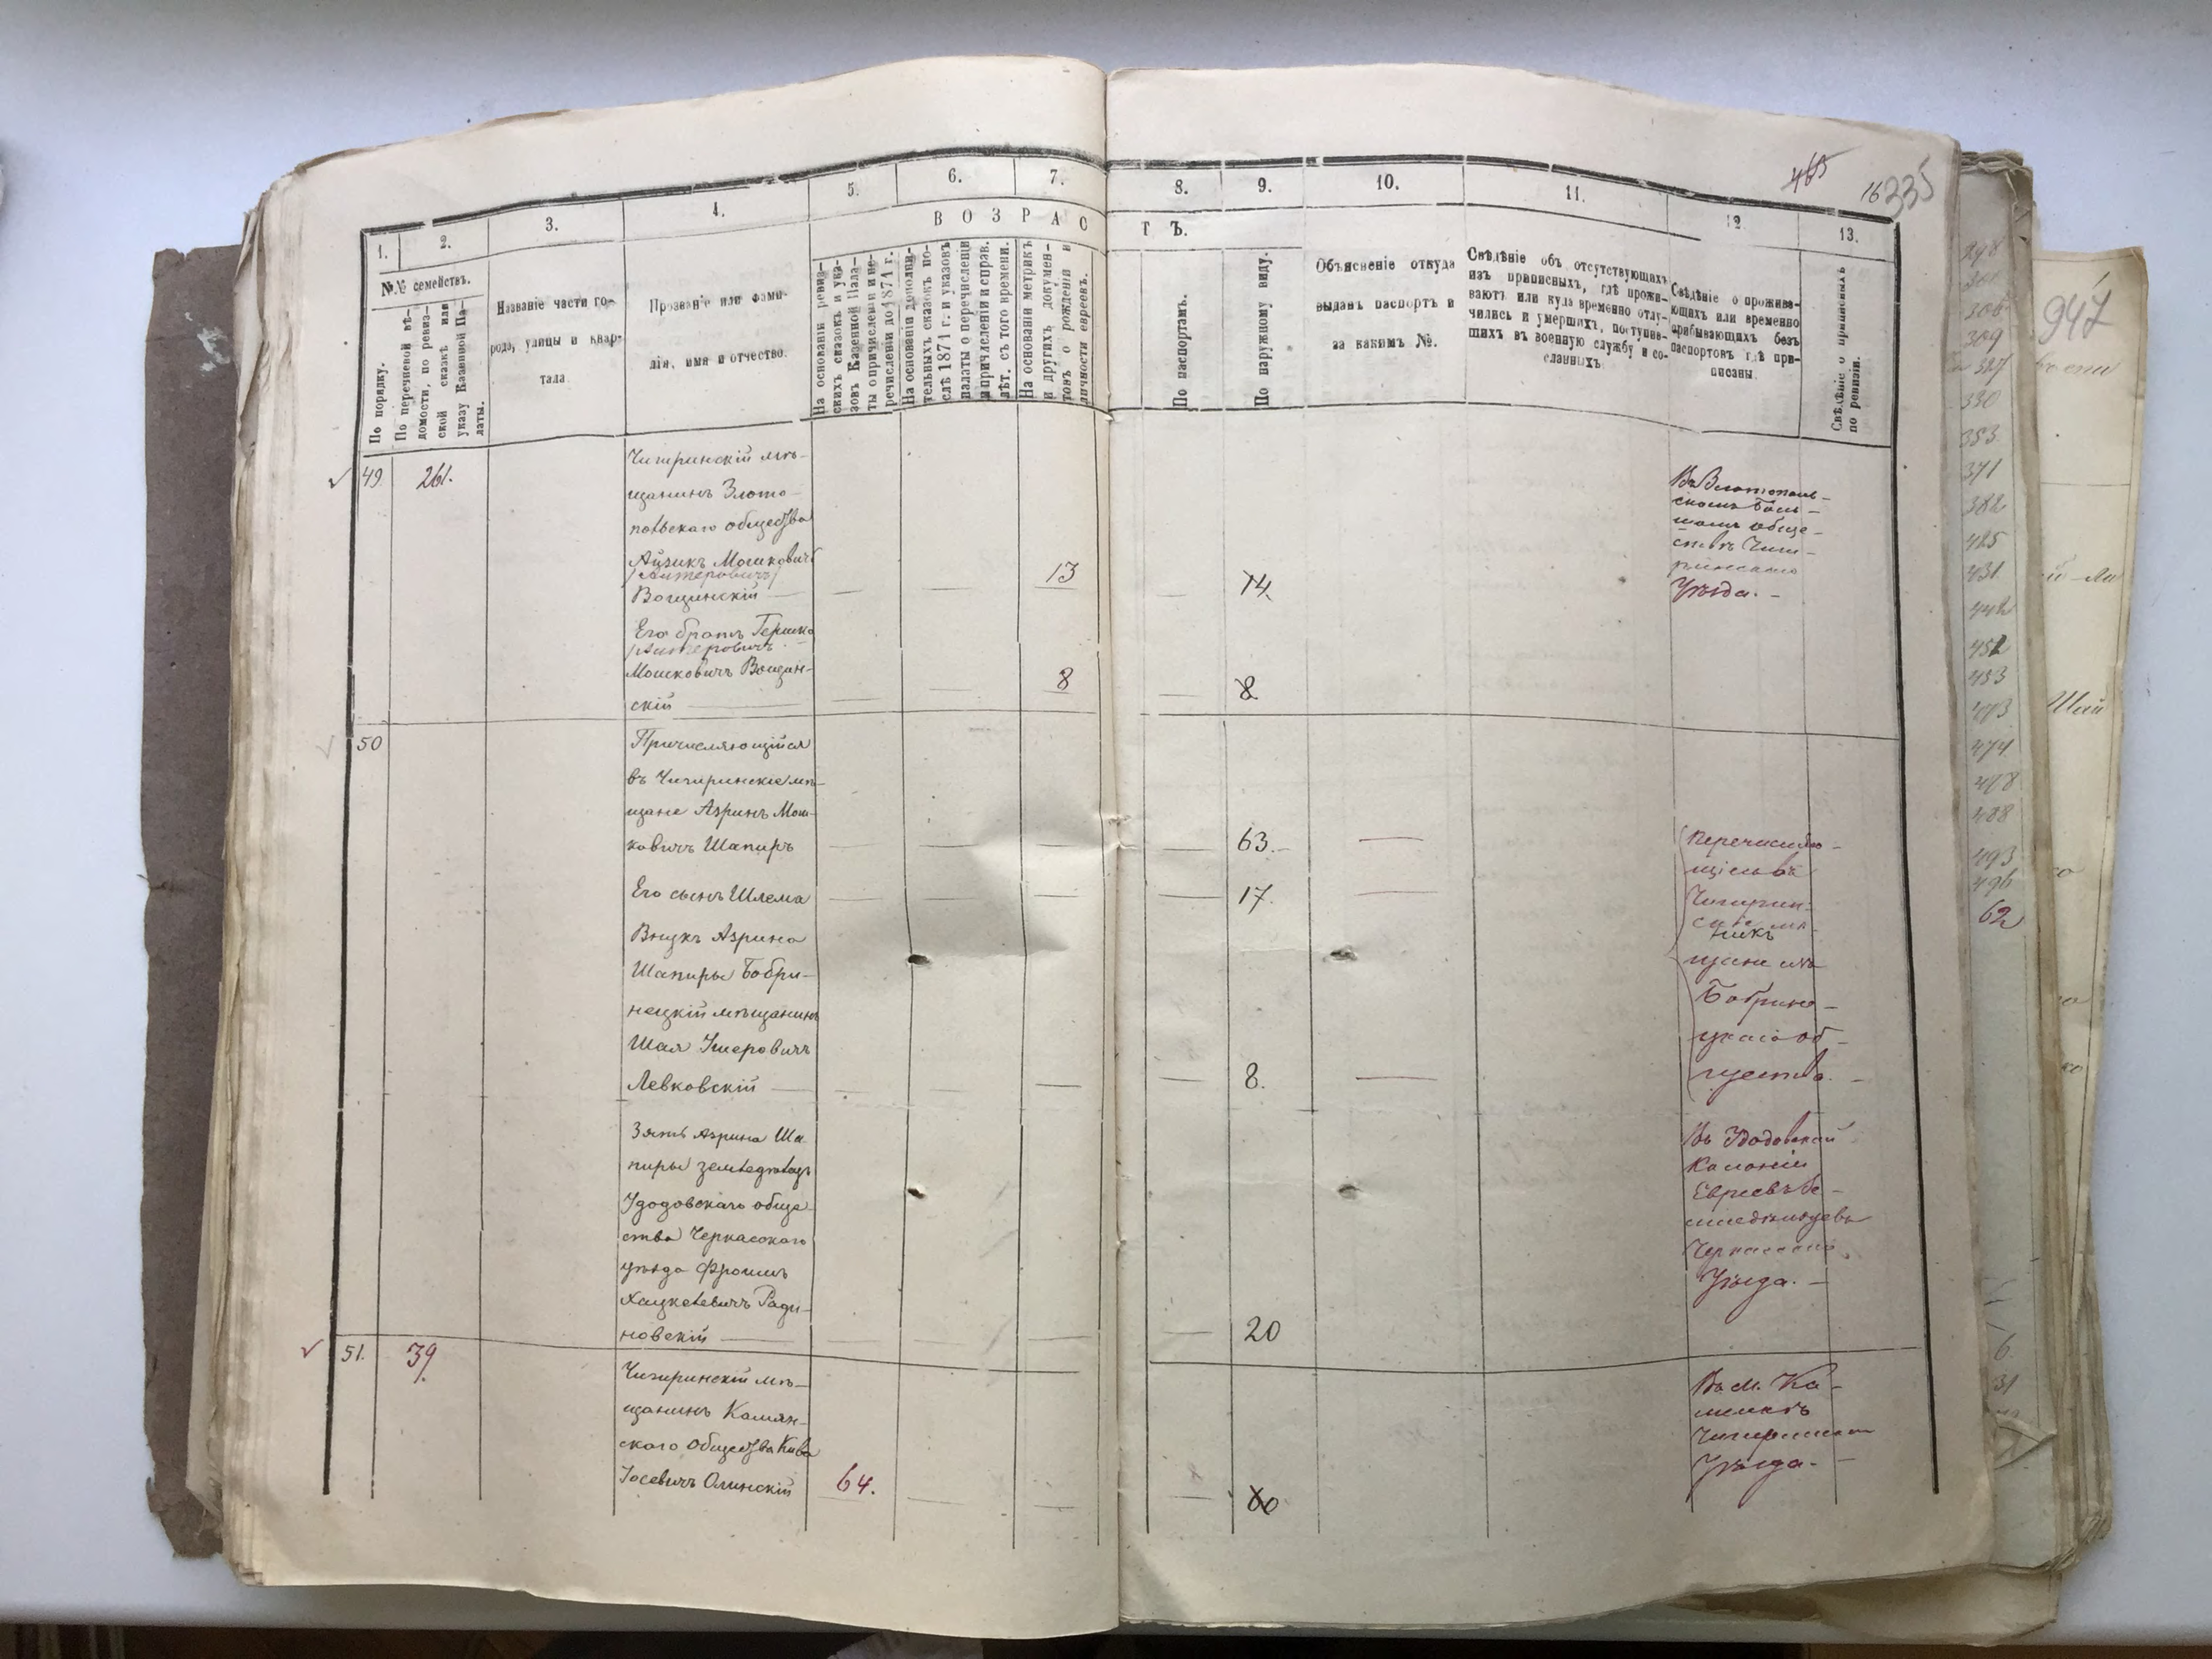 465
16 335
1.
2.
3.
4.
5.
6.
7.
8.
9.
10.
11.
12.
13.
№№ семействъ.
По порядку.
По перечневой вѣ-
домости, по ревиз-
ской сказкѣ или
указу Казенной Па-
латы.
Названіе части го-
рода, улицы и квар-
тала.
Прозваніе или фами-
лія, имя и отчество.
ВОЗРАС
ТЪ.
На основаніи ревиз-
скихъ сказокъ и ука-
зовъ Казенной Пала-
ты о причисленіи и пе-
речисленіи до 1871 г.
На основаніи дополни-
тельныхъ сказокъ по-
слѣ 1871 г. и указовъ
палаты о перечисленіи
и причисленіи и справ.
лѣт. съ того времени.
На основаніи метрикъ
и другихъ докумен-
товъ о рожденіи и
личности евреевъ.
По паспортамъ.
По наружному виду.
Объясненіе откуда
выданъ паспортъ и
за какимъ №.
Свѣдѣніе объ отсутствующихъ
изъ приписныхъ, гдѣ прожи-
ваютъ или куда временно отлу-
чились и умершихъ, поступив-
шихъ въ военную службу и со-
сланныхъ.
Свѣдѣніе о прожива-
ющихъ или временно
прибывающихъ безъ
паспортовъ гдѣ при-
писаны.
Свѣдѣніе о приписныхъ
по ревизіи.
49. 261.
Чигиринскій мѣ-
щанинъ Злато-
польскаго общества
Айзикъ Мошковичъ
Вощинскій — 13 14.
Его братъ Гершко
Мошковичъ Вощин-
скій — 8 8
Въ Златополь-
скомъ Боль-
шомъ обще-
ствѣ Чиги-
ринскаго
Уѣзда. —
50
Причисляющійся
въ Чигиринскіе мѣ-
щане Азринъ Мош-
ковичъ Шапиръ 63. —
Его сынъ Шлема 17. —
Внукъ Азрина
Шапиры Бобри-
нецкій мѣщанинъ
Шая Умеровичъ
Левковскій — 8. —
Перечисляю-
щіеся въ
Чигирин-
скіе мѣ-
щане изъ
Бобрине-
цкаго об-
щества. —
Зять Азрина Ша
пиры земледѣлецъ
Удодовскаго обще
ства Черкасскаго
уѣзда Фроимъ
Хацкелевичъ Ради-
новскій — 20
Въ Удодовской
Колоніи
Евреевъ зе-
мледѣльцевъ
Черкасскаго
Уѣзда. —
51. 39.
Чигиринскій мѣ-
щанинъ Камян-
скаго Общества Кива
Іосевичъ Олинскій 64. 60
Въ м. Ка-
менкѣ
Чигиринскаго
Уѣзда. —
298
309
330
353
371
382
425
431
442
452
453
474
488
493
496
62
6
31
947